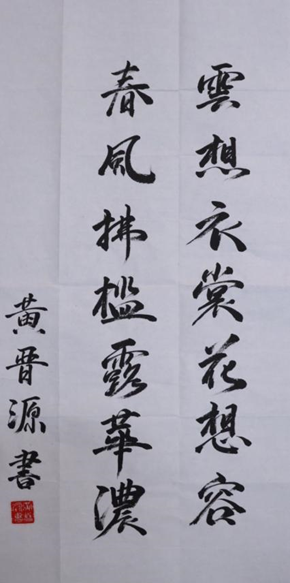 雲想衣裳花想容
春風拂檻露華濃
黃晋源書